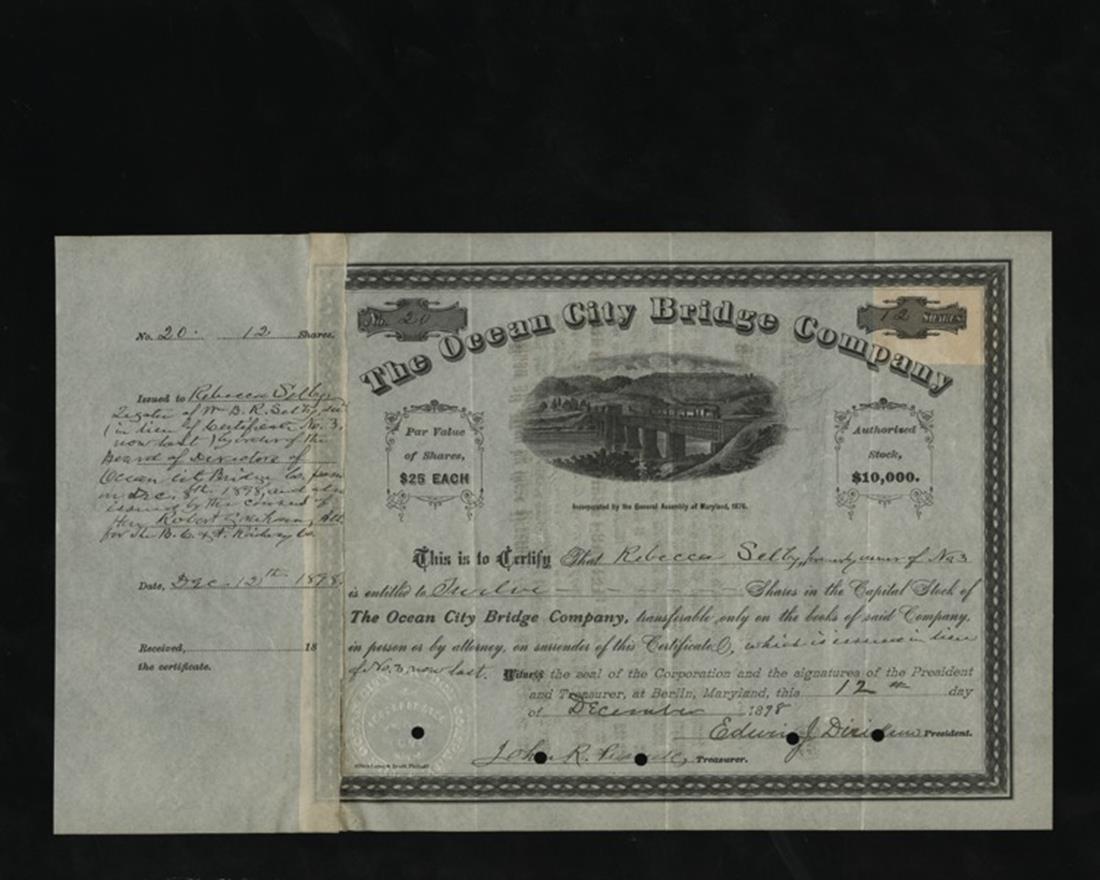 No. 20. 12 Shares.
Issued to Rebecca Selby,
Legatee of Wm B. R. Selby,
(in lieu of Certificate No. 3,
now lost) by order of the
Board of Directors of
Ocean City Bridge Co.
on Dec. 8th 1898, and also
issued by the consent of
Robert
for the B. C. & A. Railway Co.
Date, Dec 12th 1898.
Received, 18
the certificate.
No. 20
12 SHARES
The Ocean City Bridge Company
Par Value
of Shares,
$25 EACH
Authorized
Stock,
$10,000.
Incorporated by the General Assembly of Maryland, 1876.
This is to Certify That Rebecca Selby, formerly owner of No 3
is entitled to Twelve Shares in the Capital Stock of
The Ocean City Bridge Company, transferable only on the books of said Company,
in person or by attorney, on surrender of this Certificate, which is issued in lieu
of No. 3, now lost. Witness the seal of the Corporation and the signatures of the President
and Treasurer, at Berlin, Maryland, this 12th day
of December 1898
Edwin J. President.
John R. Treasurer.